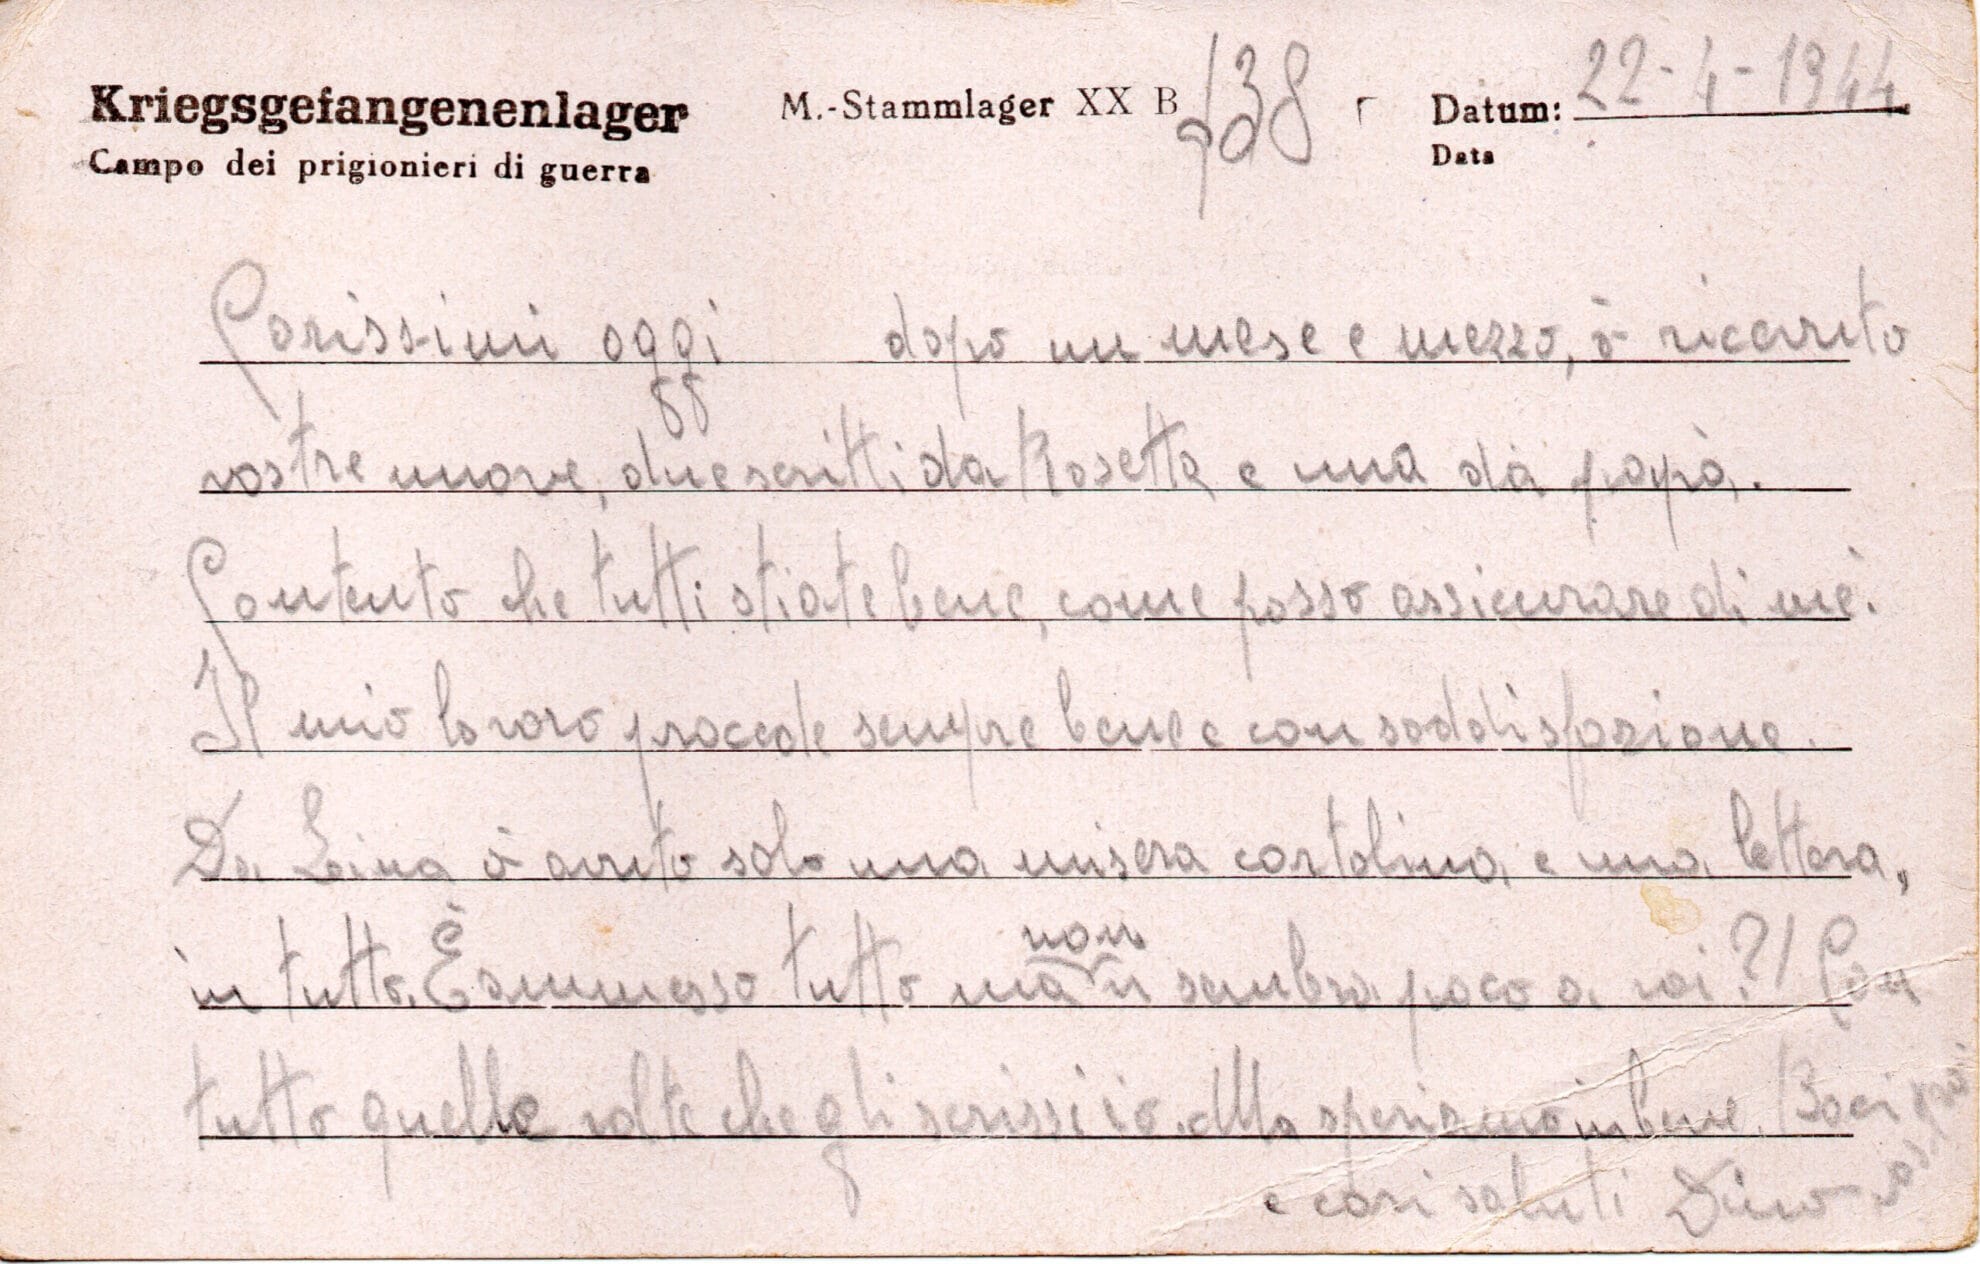 Kriegsgefangenenlager M.-Stammlager XX B 138 r Datum: 22-4-1944
Campo dei prigionieri di guerra Data
Carissimi oggi dopo un mese e mezzo, ò ricevuto
vostre nuove, due scritti da Rosetta e una dà papà.
Contento che tutti stiate bene, come posso assicurare di mè.
Il mio lavoro procede sempre bene e con soddisfazione.
Da Lina ò avuto solo una misera cartolina e una lettera,
in tutto. È ammesso tutto ma non vi sembra poco a voi?! Con
tutto quelle volte che gli scrissi io. Ma speriamo in bene. Baci
e cari saluti Dino